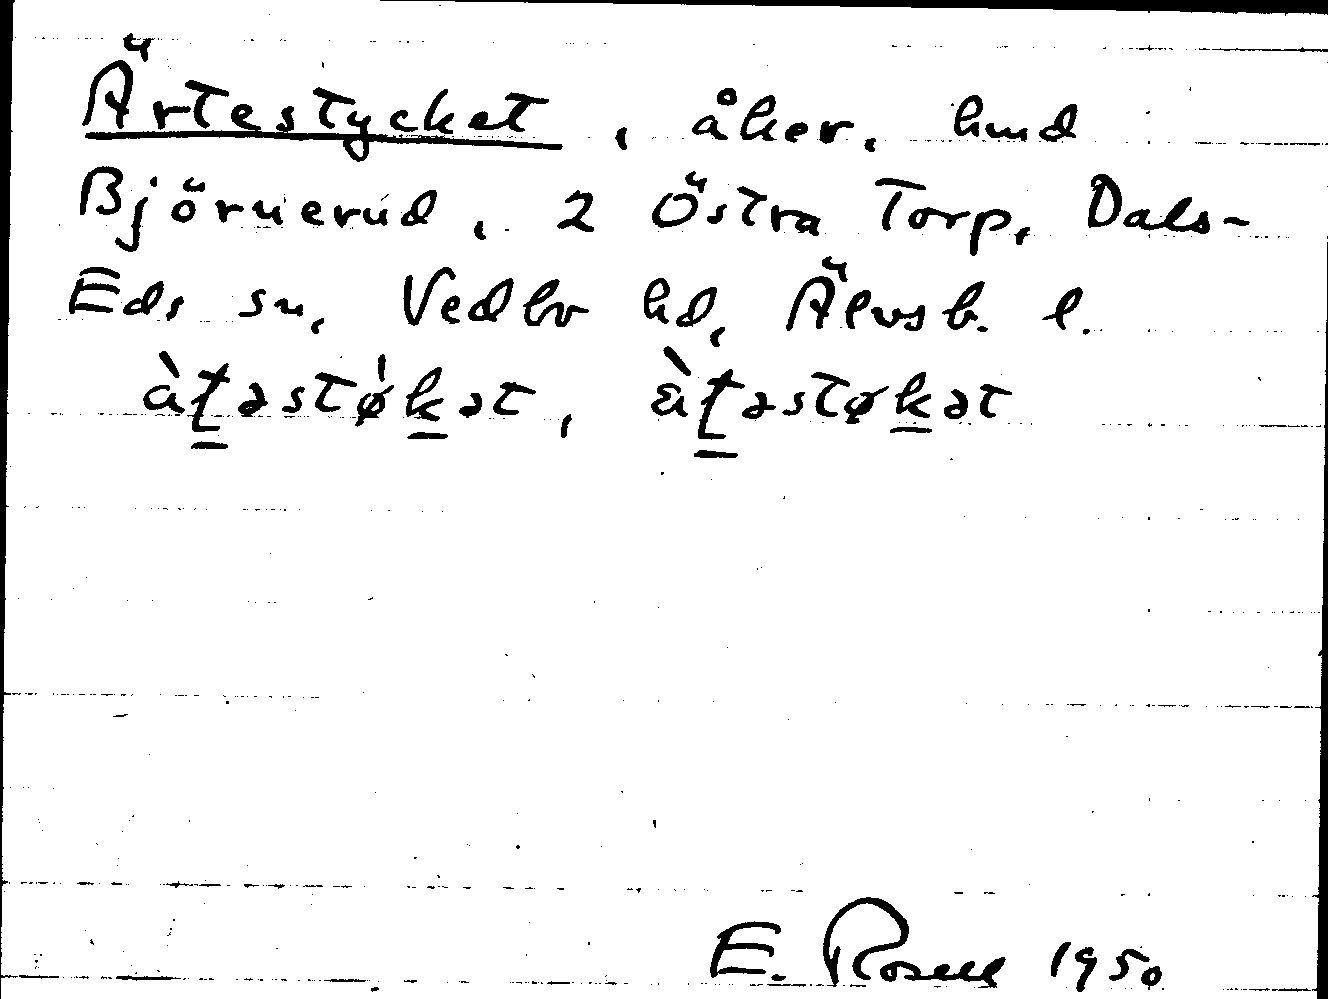 Ärtestycket, åker, hmd
Björnerud, 2 Östra Torp, Dals-
Eds sn, Vedbo hd, Älvsb. l.
àt̠əstø̍k̠ət, ɛ̀t̠əstøk̠ət
E. Rosell 1950